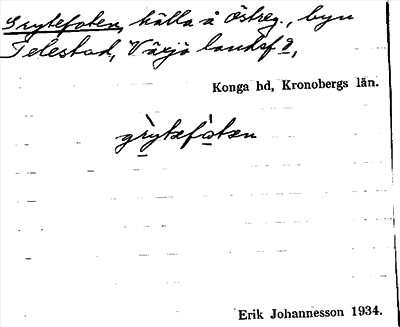 Grytefoten, källa å Östreg., byn
Telestad, Växjö landsf 8,
Konga hd, Kronobergs län.
grytefotən
Erik Johannesson 1934.